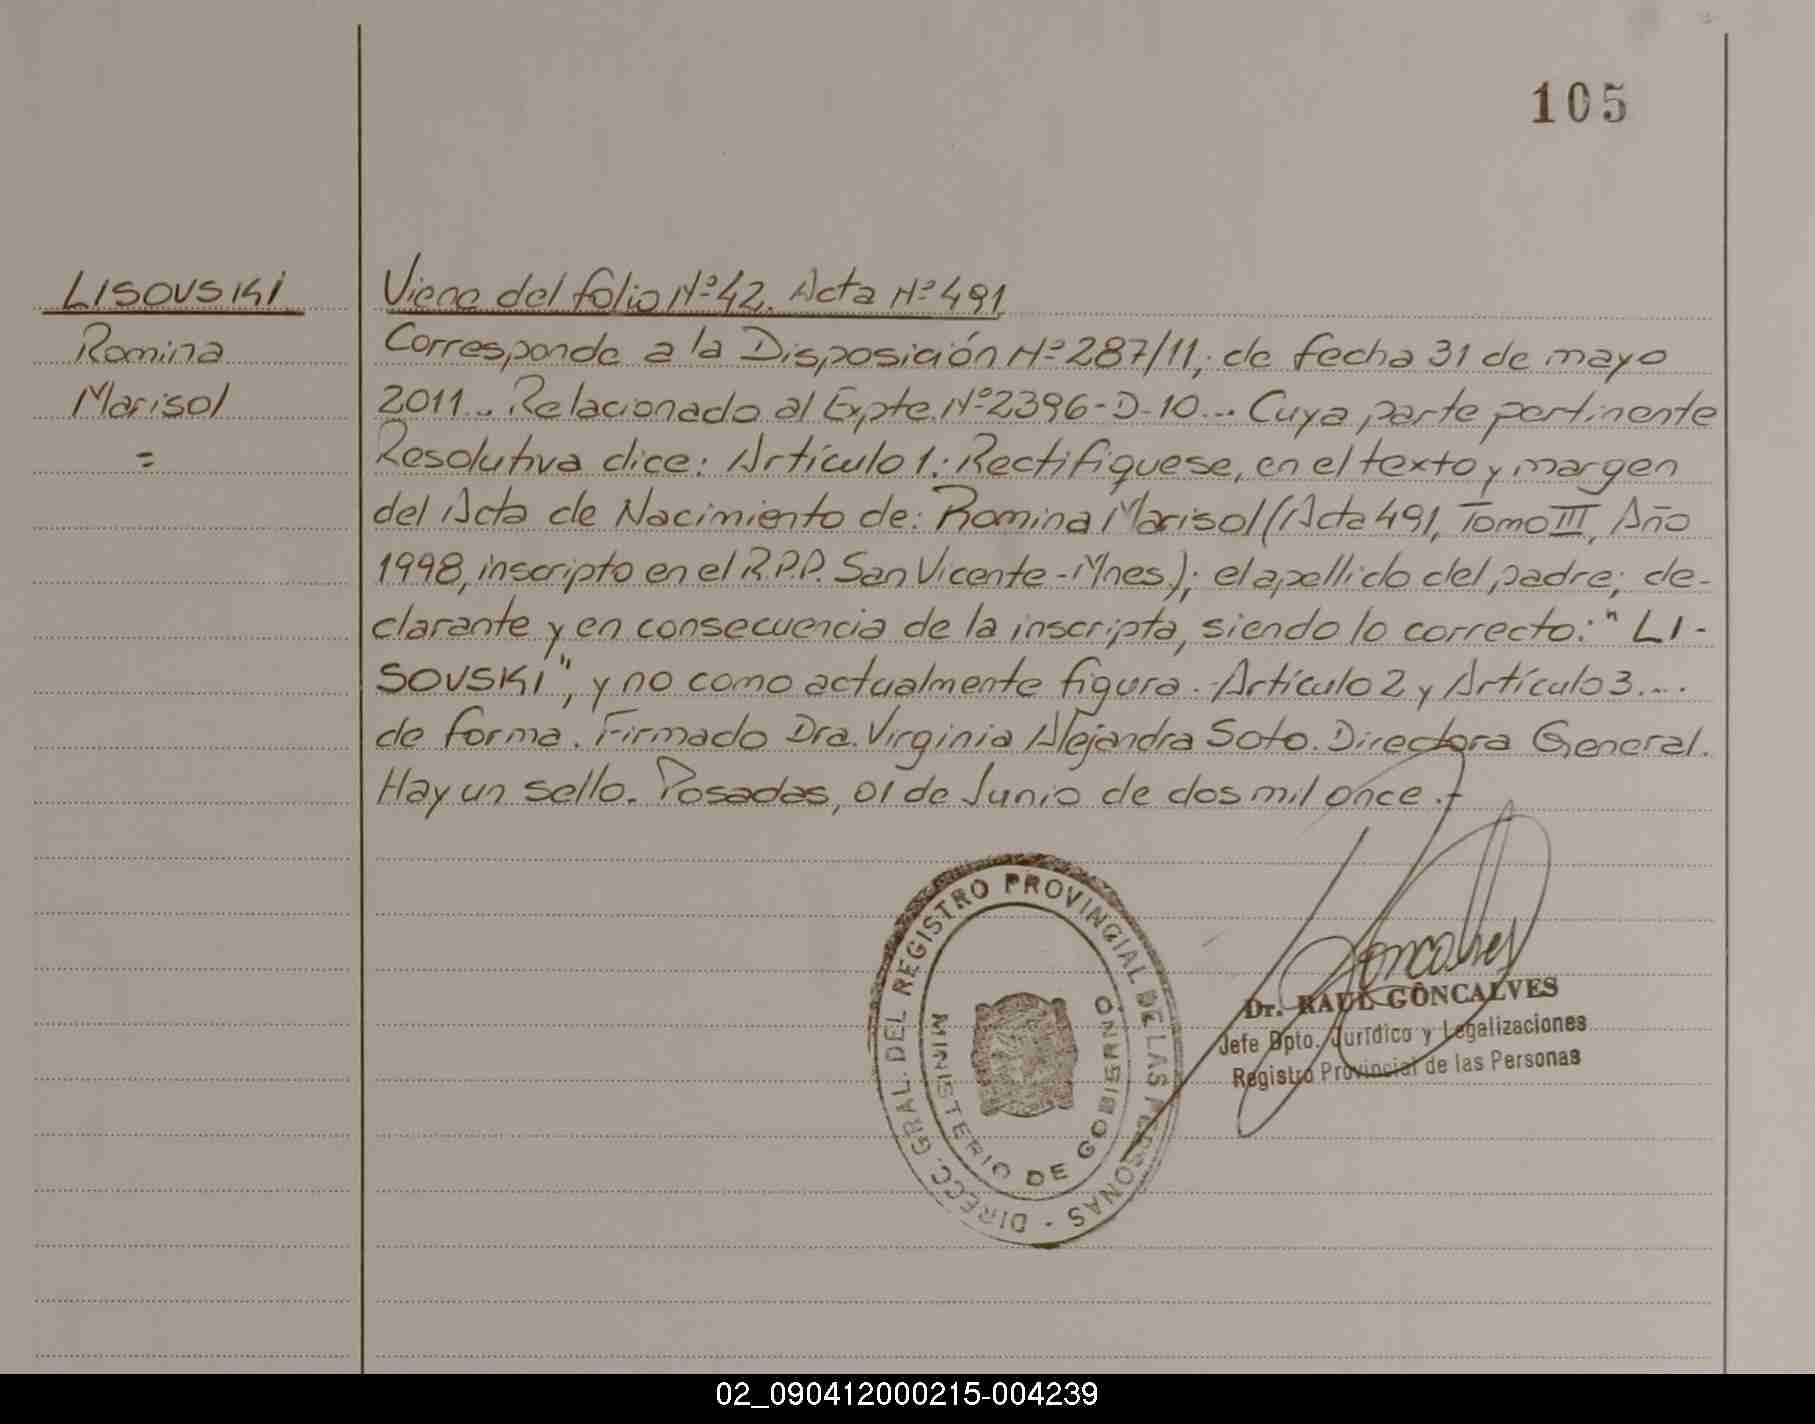 105
LISOVSKI
Romina
Marisol
=
Viene del folio Nº 42. Acta Nº 491
Corresponde a la Disposición Nº 287/11; de fecha 31 de mayo
2011.. Relacionado al Expte. Nº 2396-D-10... Cuya parte pertinente
Resolutiva dice: Artículo 1: Rectifiquese, en el texto y margen
del Acta de Nacimiento de: Romina Marisol (Acta 491, Tomo III, Año
1998, inscripto en el R.P.P. San Vicente-Mnes.); el apellido del padre; de-
clarante y en consecuencia de la inscripta, siendo lo correcto: "LI-
SOVSKI", y no como actualmente figura.. Artículo 2 y Artículo 3....
de forma. Firmado Dra. Virginia Alejandra Soto. Directora General.
Hay un sello. Posadas, 01 de Junio de dos mil once.-
DIRECC. GRAL. DEL REGISTRO PROVINCIAL DE LAS PERSONAS -
MINISTERIO DE GOBIERNO
Goncalves
Dr. RAUL GONCALVES
Jefe Dpto. Jurídico y Legalizaciones
Registro Provincial de las Personas
02_090412000215-004239